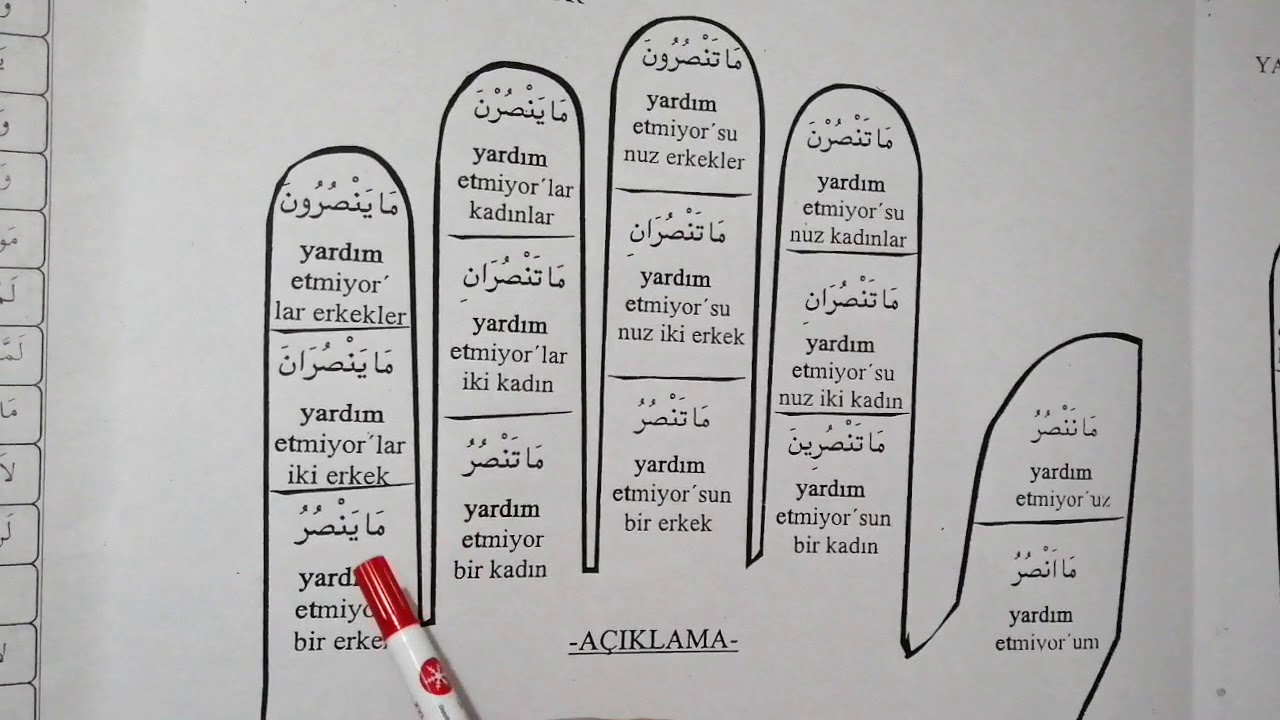 مَا يَنْصُرُونَ
yardım
etmiyor´
lar erkekler
مَا يَنْصُرَانَ
yardım
etmiyor´lar
iki erkek
مَا يَنْصُرُ
etmiyo
bir erkek
مَا يَنْصُرْنَ
yardım
etmiyor´lar
kadınlar
مَا تَنْصُرَانِ
yardım
etmiyor´lar
iki kadın
مَا تَنْصُرُ
yardım
etmiyor
bir kadın
مَا تَنْصُرُونَ
yardım
etmiyor´su
nuz erkekler
مَا تَنْصُرَانِ
yardım
etmiyor´su
nuz iki erkek
مَا تَنْصُرُ
yardım
etmiyor´sun
bir erkek
مَا تَنْصُرْنَ
yardım
etmiyor´su
nuz kadınlar
مَا تَنْصُرَانِ
yardım
etmiyor´su
nuz iki kadın
مَا تَنْصُرِينَ
yardım
etmiyor´sun
bir kadın
مَا نَنْصُرُ
yardım
etmiyor´uz
مَا اَنْصُرُ
yardım
etmiyor´um
-AÇIKLAMA-